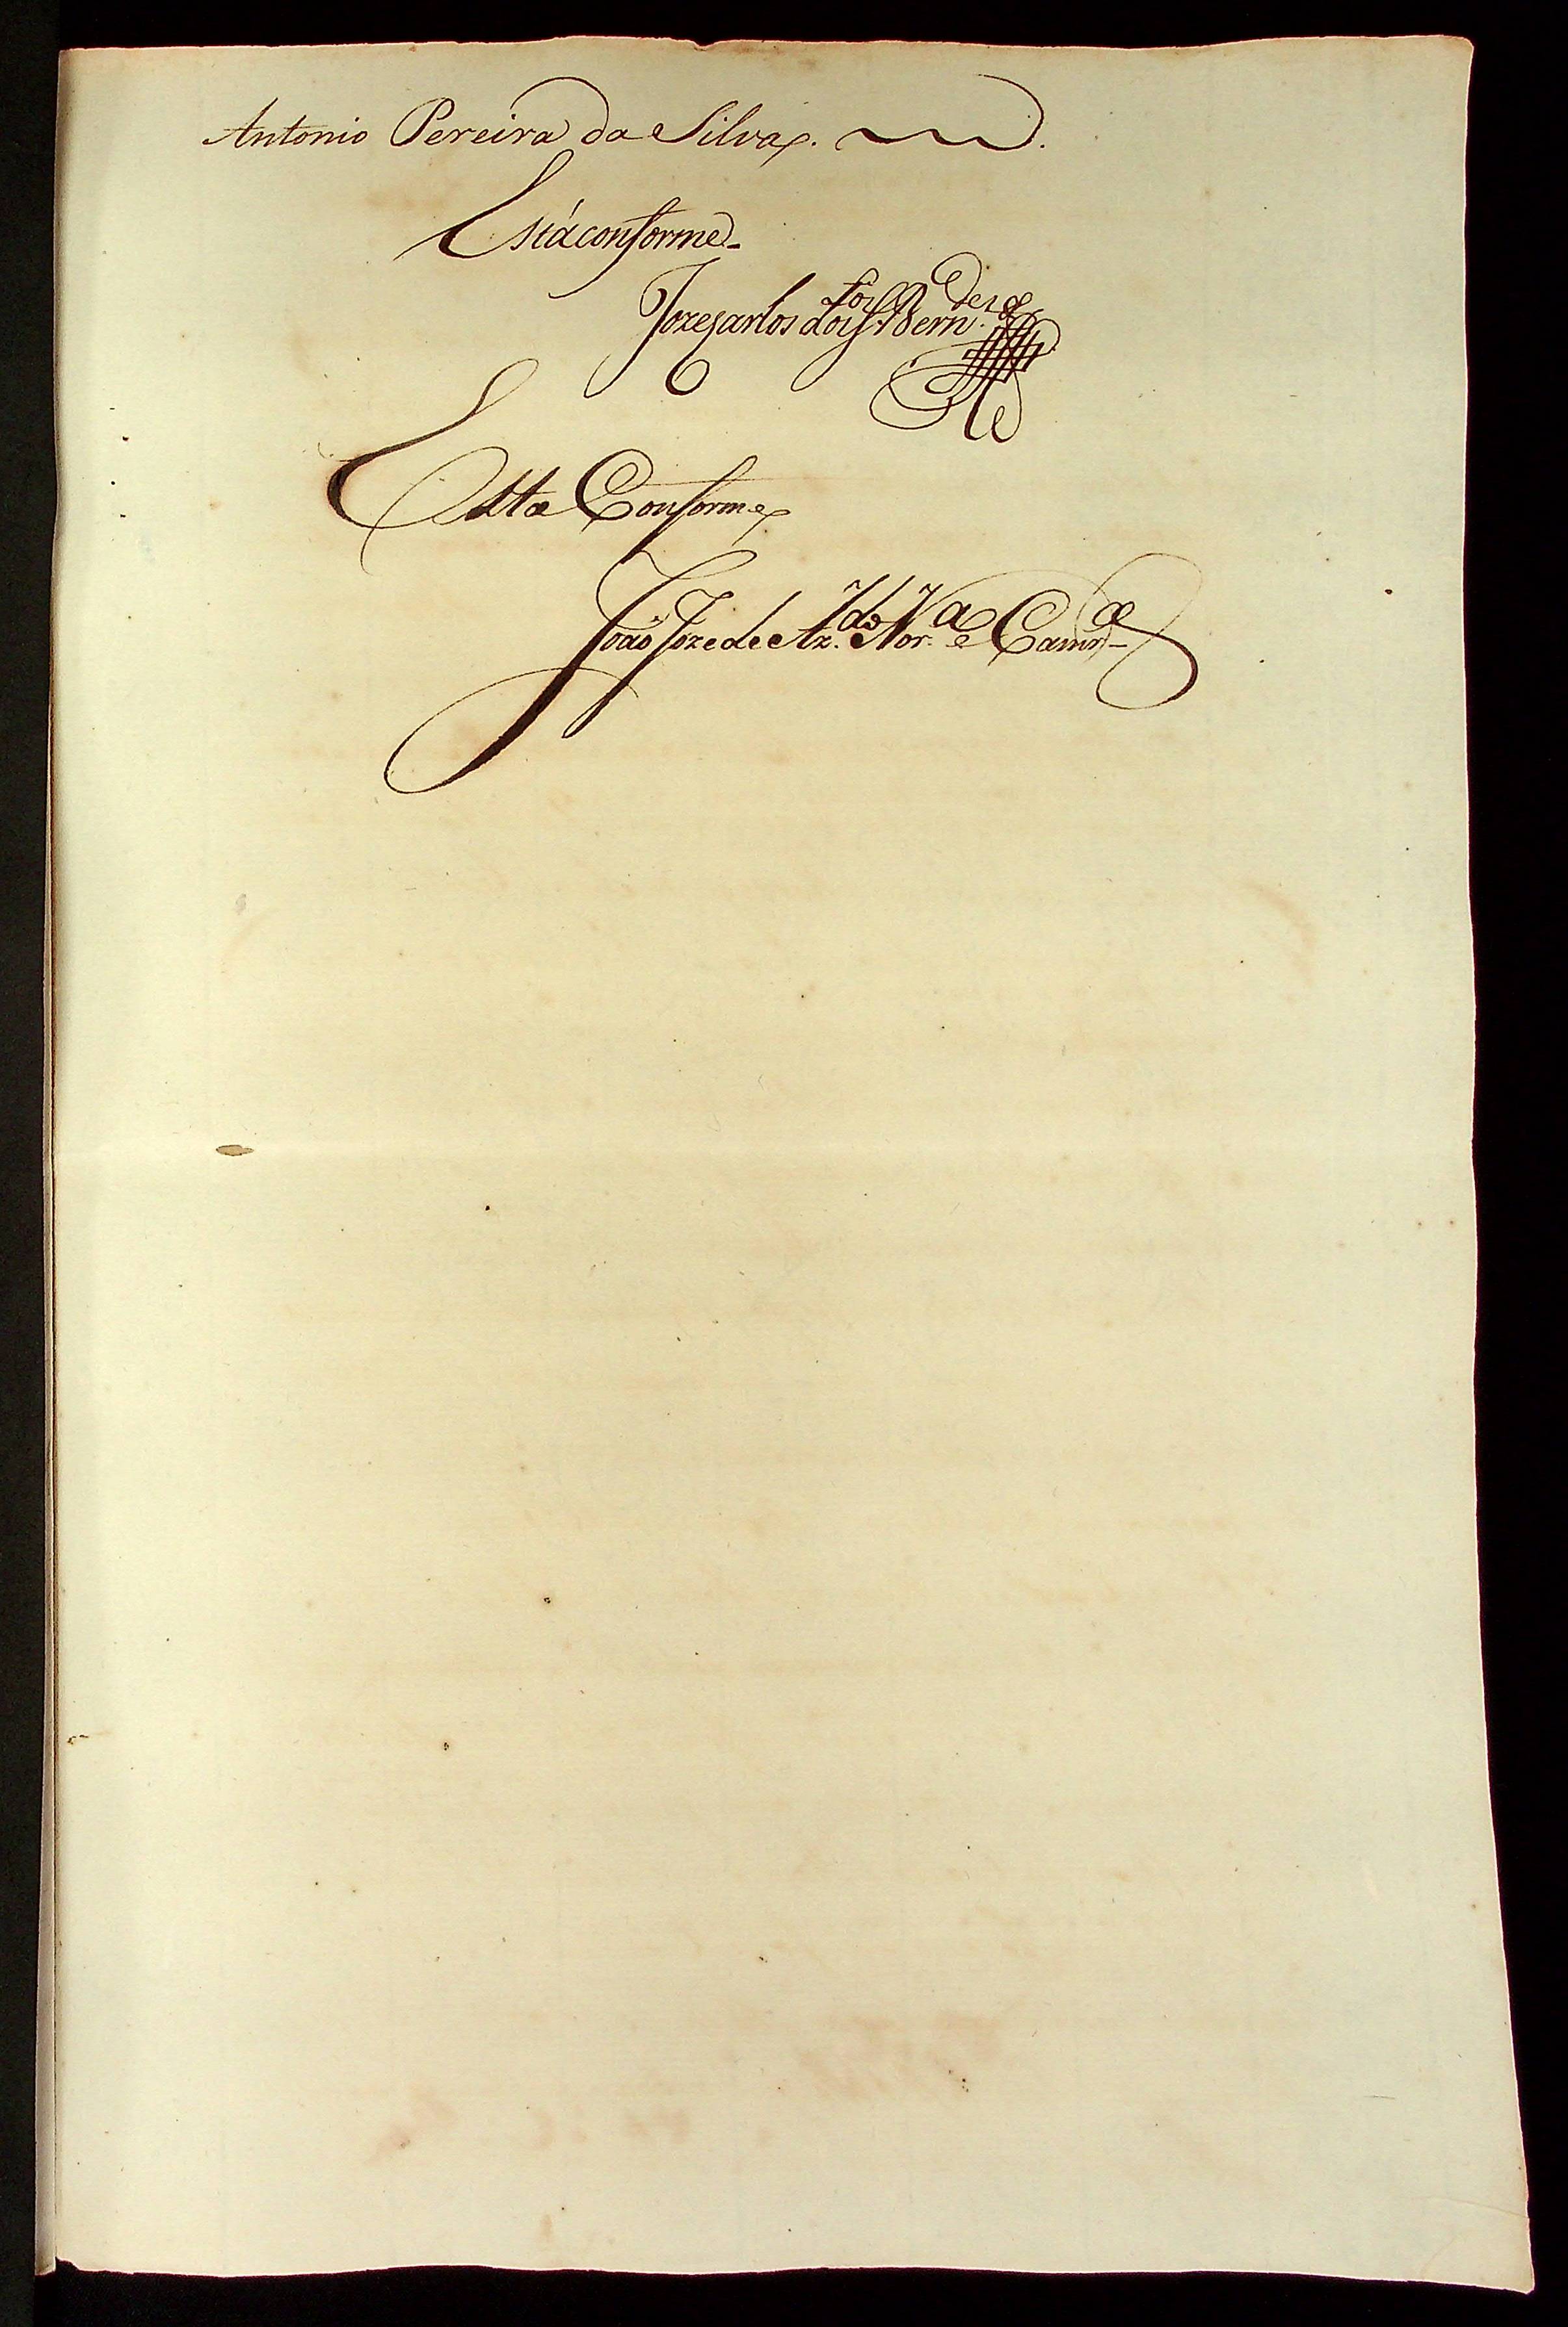 Antonio Pereira da Silva.
Está conforme
Joze Carlos dos S.tos Bern.des
Está Conforme
João Joze de Az.do Nor.a e Camr.a